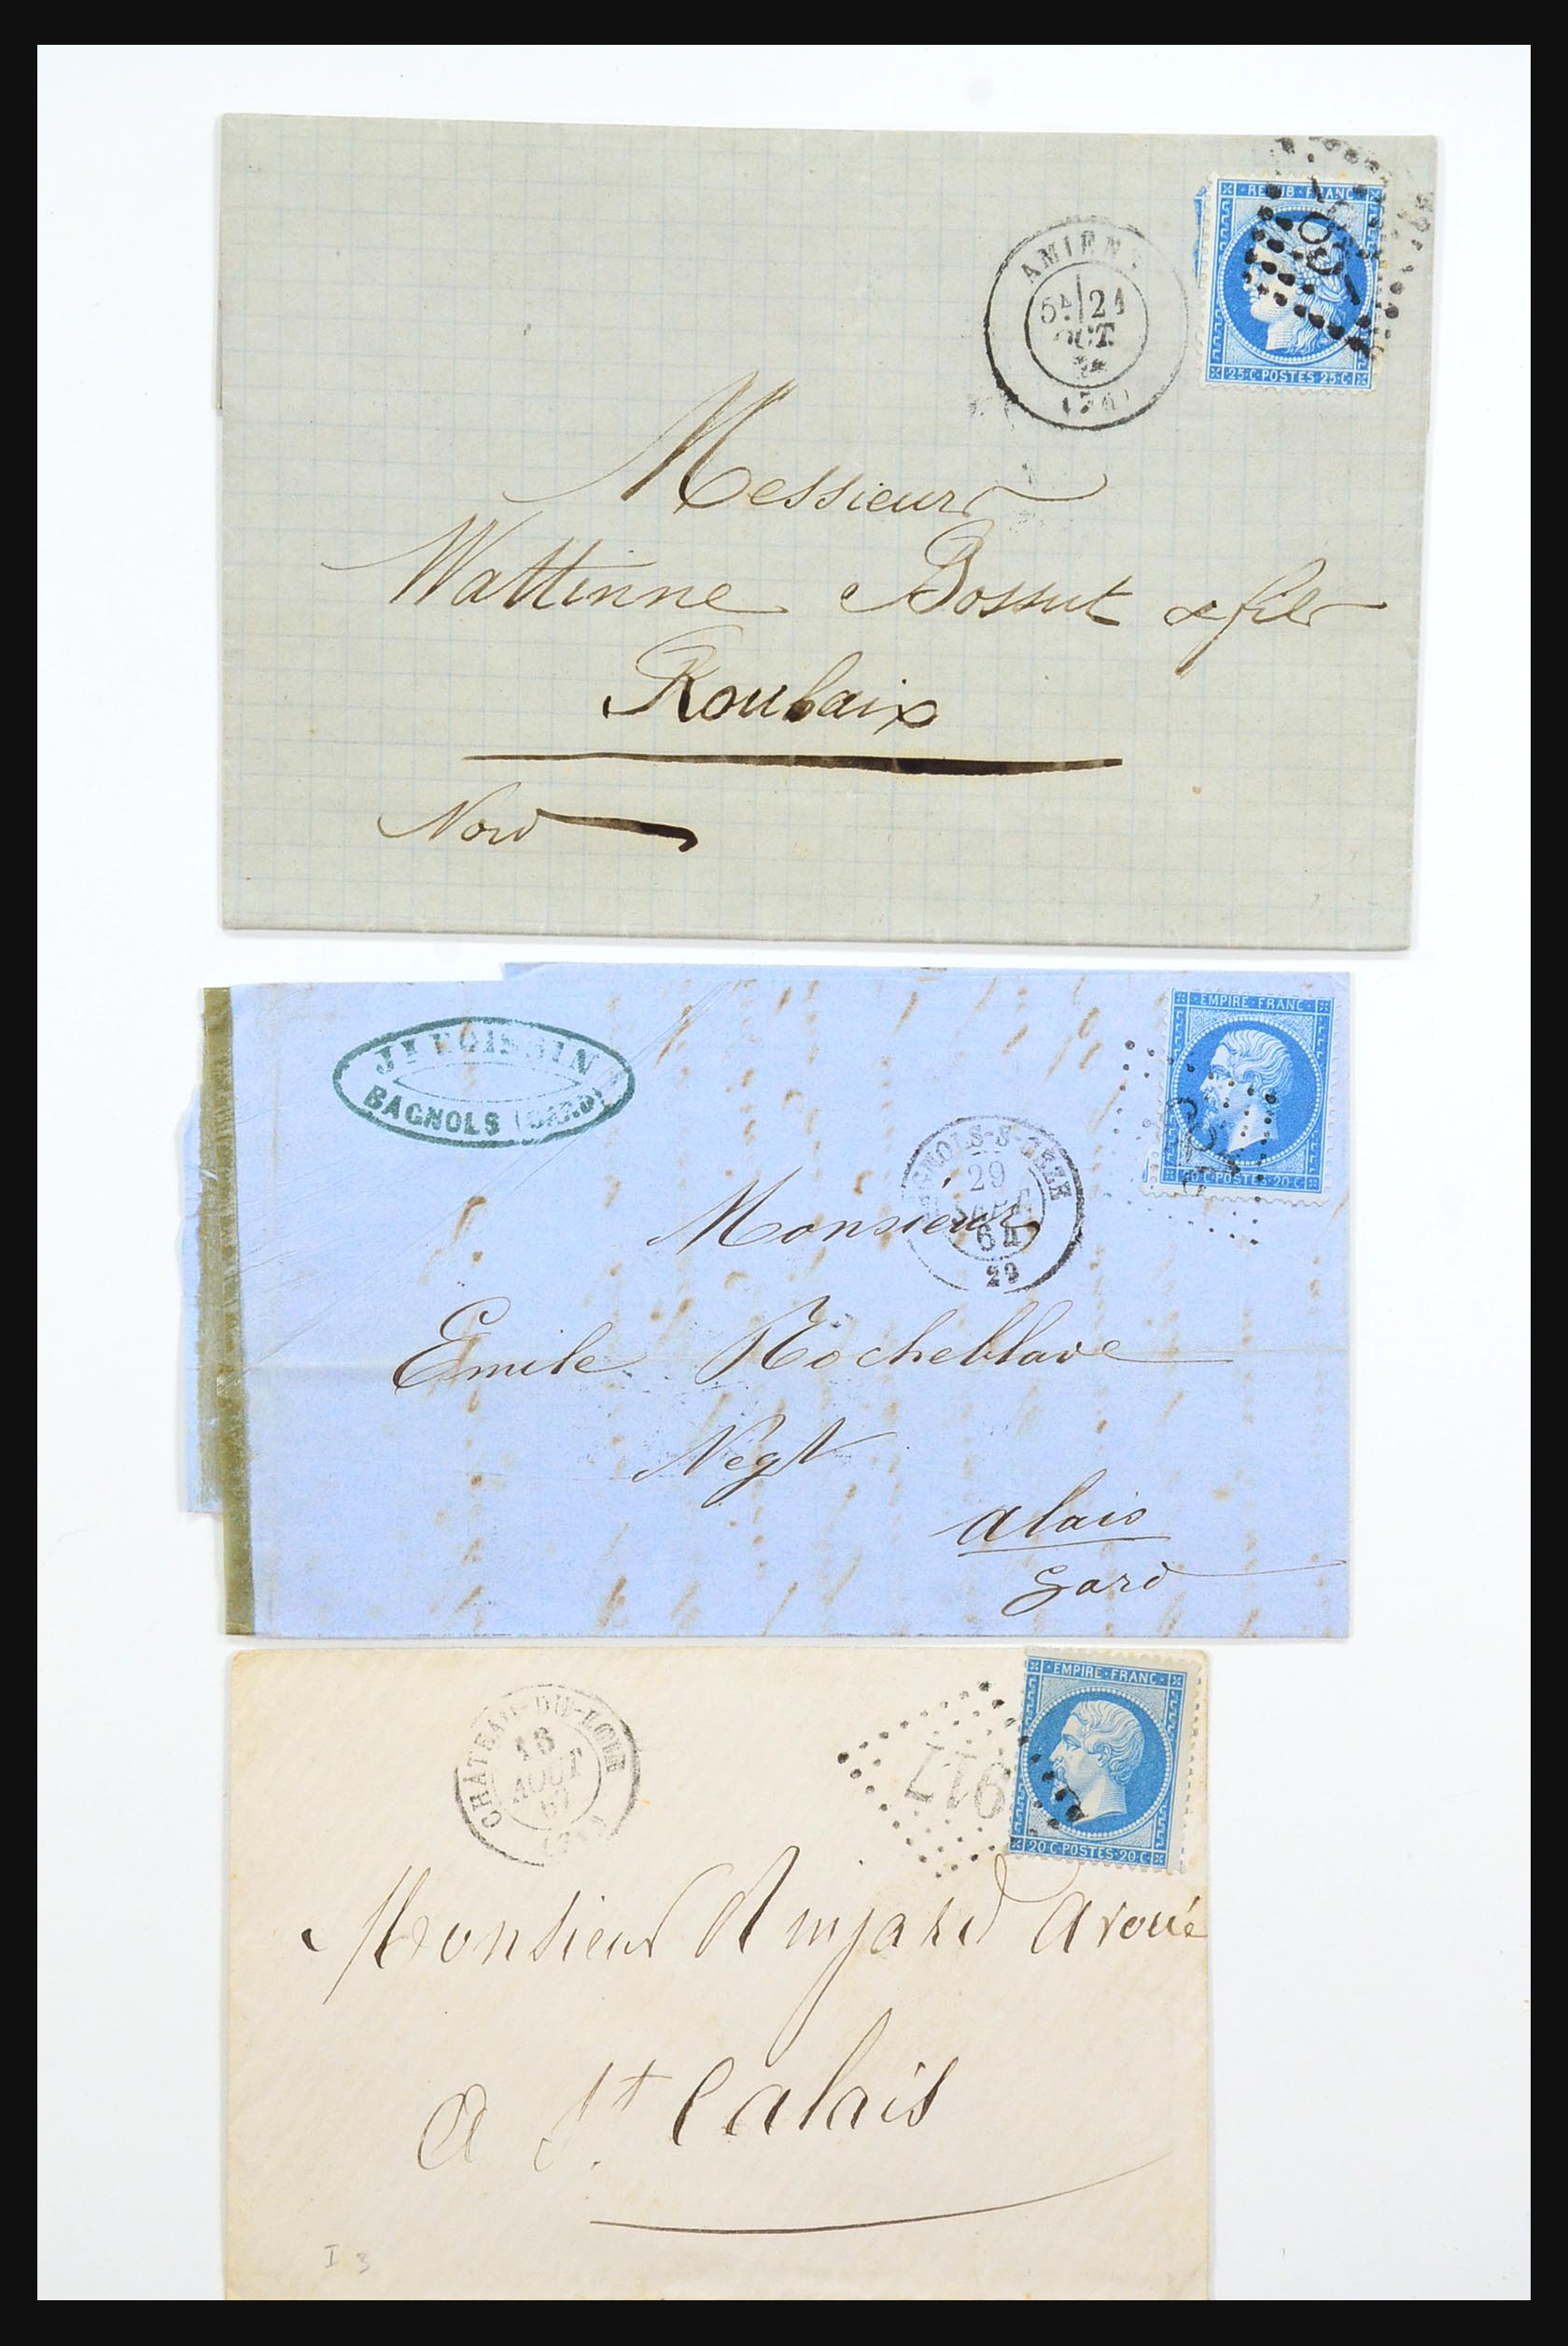 REPUB · FRANC
AMIENS
5E 21
OCT.
74
(76)
25 · C · POSTES 25 · C
Messieurs
Wattinne Bossut & fils
Roubaix
Nord
BAGNOLS (GARD)
EMPIRE · FRANC
20 · C · POSTES · 20 · C
BAGNOLS-S-CEZE
29
SEPT
64
29
Monsieur
Emile Rocheblave
Negt
alais
Gard
CHÂTEAU-DU-LOIR
16
AOUT
67
917
EMPIRE · FRANC
20 · C · POSTES · 20 · C
Monsieur Rujard Avoué
A St Calais
I 3